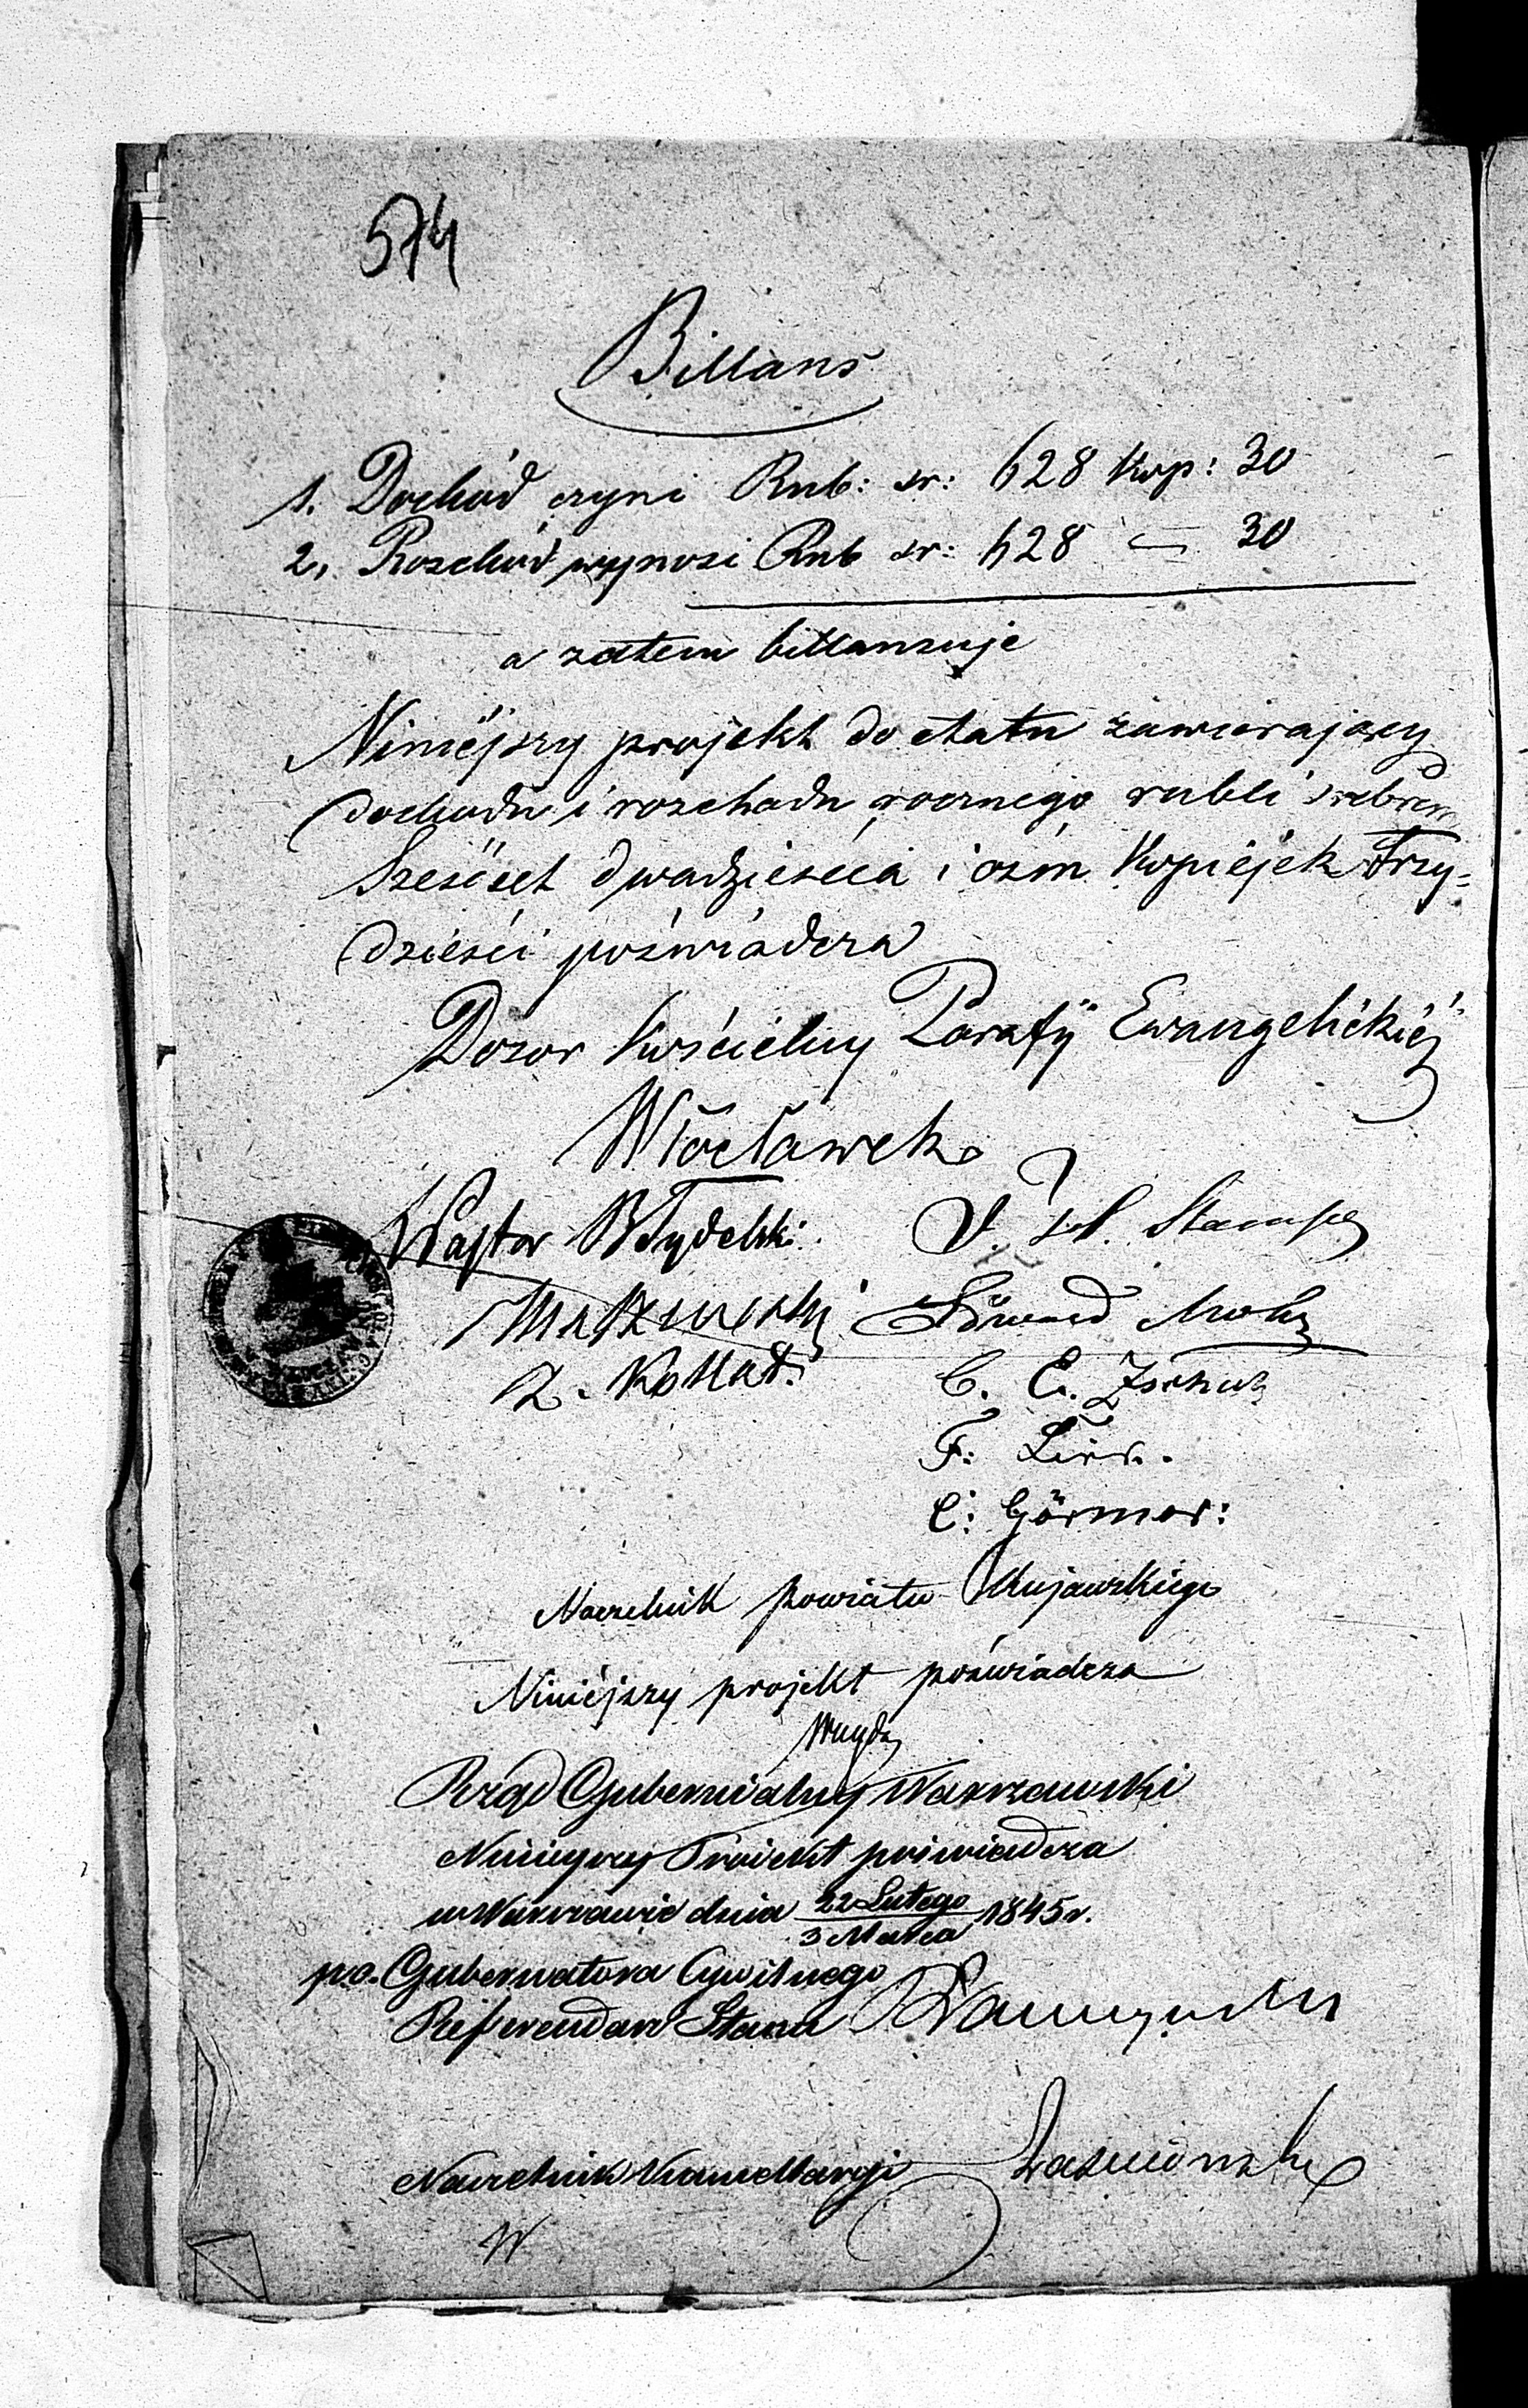 574
Billans
1. Dochód czyni Rub: sr: 628 Kop: 30
2, Rozchód wynosi Rub sr: 628 = 30
a zatem billansuje
Niniéjszy projekt do etatu zawierający
dochodu i rozchodu rocznego rubli srebrem
Sześćset dwadzieścia i ośm Kopiéjek trzy=
dzieści poświadcza
Dozor Kościelny Parafÿ Ewangelickiéj
Włocławek
Pastor Błydelski
Z. Kollat.
F: 
C: Görmer:
Naczelnik Powiatu Kujawskiego
Niniéjszy projekt poświadcza
Rząd Gubernialny Warszawski
Niniejszy Proiekt poświadcza
w Warszawie dnia 22 Lutego / 3 Marca 1845 r.
p.o. Gubernatora Cywilnego
Referendarz Stanu
Naczelnik Kancellaryi
W